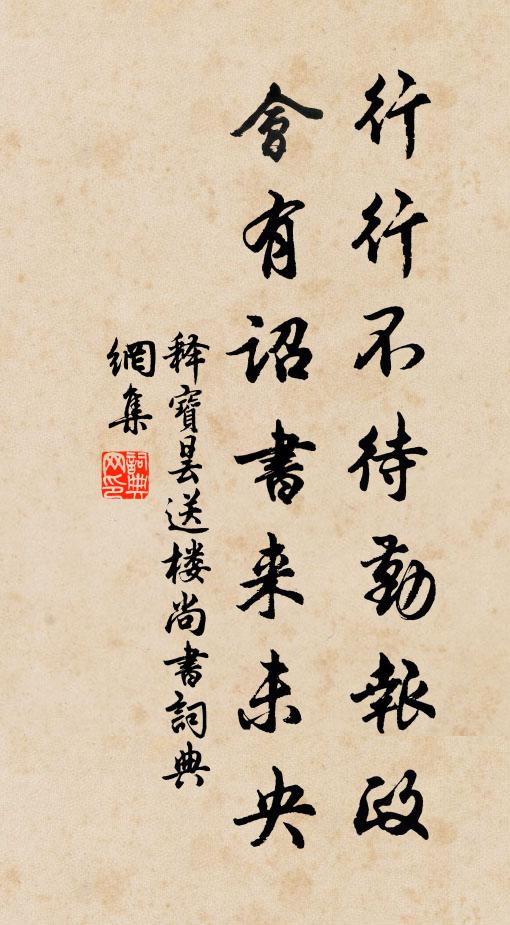 行行不待勤報政
會有詔書来未央
釋寶曇送楼尚書詞典
網集
詞典
网印